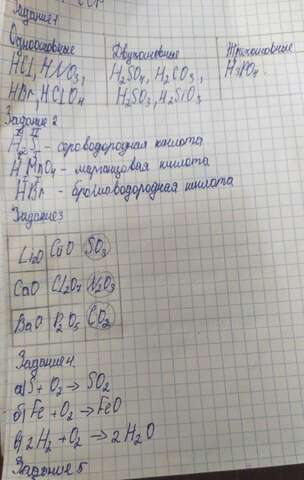 Задание 1
Одноосновные Двухосновные Трехосновные
HCl, HNO3, H2SO4, H2CO3, H3PO4
HBr, HClO4 H2SO3, H2SiO3
Задание 2
I II
H2S - сероводородная кислота
HMnO4 - марганцовая кислота
HBr - бромоводородная кислота
Задание 3
Li2O CuO SO3
CaO Cl2O7 N2O3
BaO P2O5 CO2
Задание 4
а) S + O2 → SO2
б) Fe + O2 → FeO
в) 2H2 + O2 → 2H2O
Задание 5